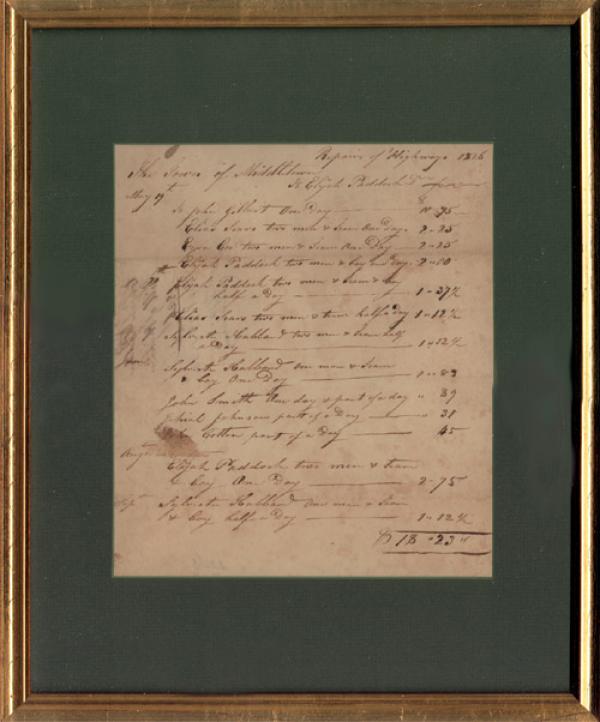 Repairs of Highways 1826
The Town of Middletown
To Elijah Paddock Dr
May 19th
To John Gilbert One day 0-75
Elias Sears two men & team One day 2-25
Ezra Coe two men & Team One Day 2-25
Elijah Paddock two men & boy One day 2-00
Elijah Paddock two men & team & boy
half a day 1-37½
Elias Sears two men & team half a day 1-12½
Sylvester Hubbard two men & Team half
a day 1-12½
June
Sylvester Hubbard one man & Team
& boy One Day
John Smith One day & part of a day " 39
Johnson part of a day " 31
Cotton part of a day 45
Augt
Elijah Paddock two men & team
& boy One day 2-75
Sept Sylvester Hubbard One man & Team
& boy half a day 1-12½
$ 18-23